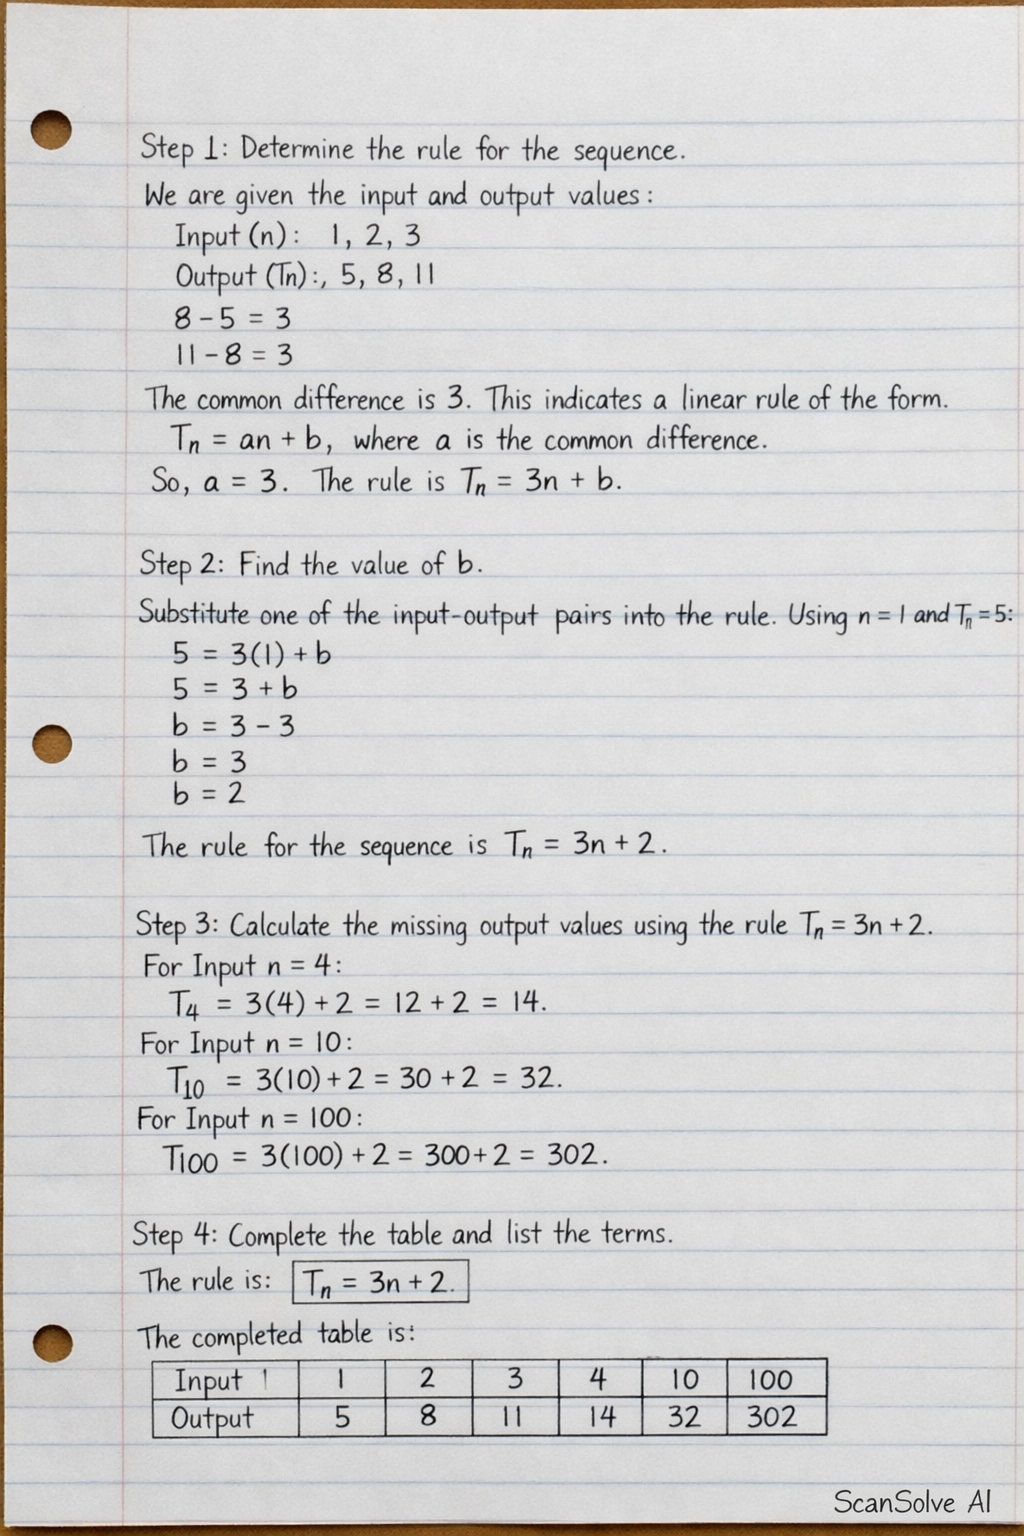 Step 1: Determine the rule for the sequence.
We are given the input and output values:
Input (n): 1, 2, 3
Output (Tn):, 5, 8, 11
8 - 5 = 3
11 - 8 = 3
The common difference is 3. This indicates a linear rule of the form.
Tn = an + b, where a is the common difference.
So, a = 3. The rule is Tn = 3n + b.
Step 2: Find the value of b.
Substitute one of the input-output pairs into the rule. Using n = 1 and Tn = 5:
5 = 3(1) + b
5 = 3 + b
b = 3 - 3
b = 3
b = 2
The rule for the sequence is Tn = 3n + 2.
Step 3: Calculate the missing output values using the rule Tn = 3n + 2.
For Input n = 4:
T4 = 3(4) + 2 = 12 + 2 = 14.
For Input n = 10:
T10 = 3(10) + 2 = 30 + 2 = 32.
For Input n = 100:
T100 = 3(100) + 2 = 300 + 2 = 302.
Step 4: Complete the table and list the terms.
The rule is: Tn = 3n + 2.
The completed table is:
Input 1 2 3 4 10 100
Output 5 8 11 14 32 302
ScanSolve AI